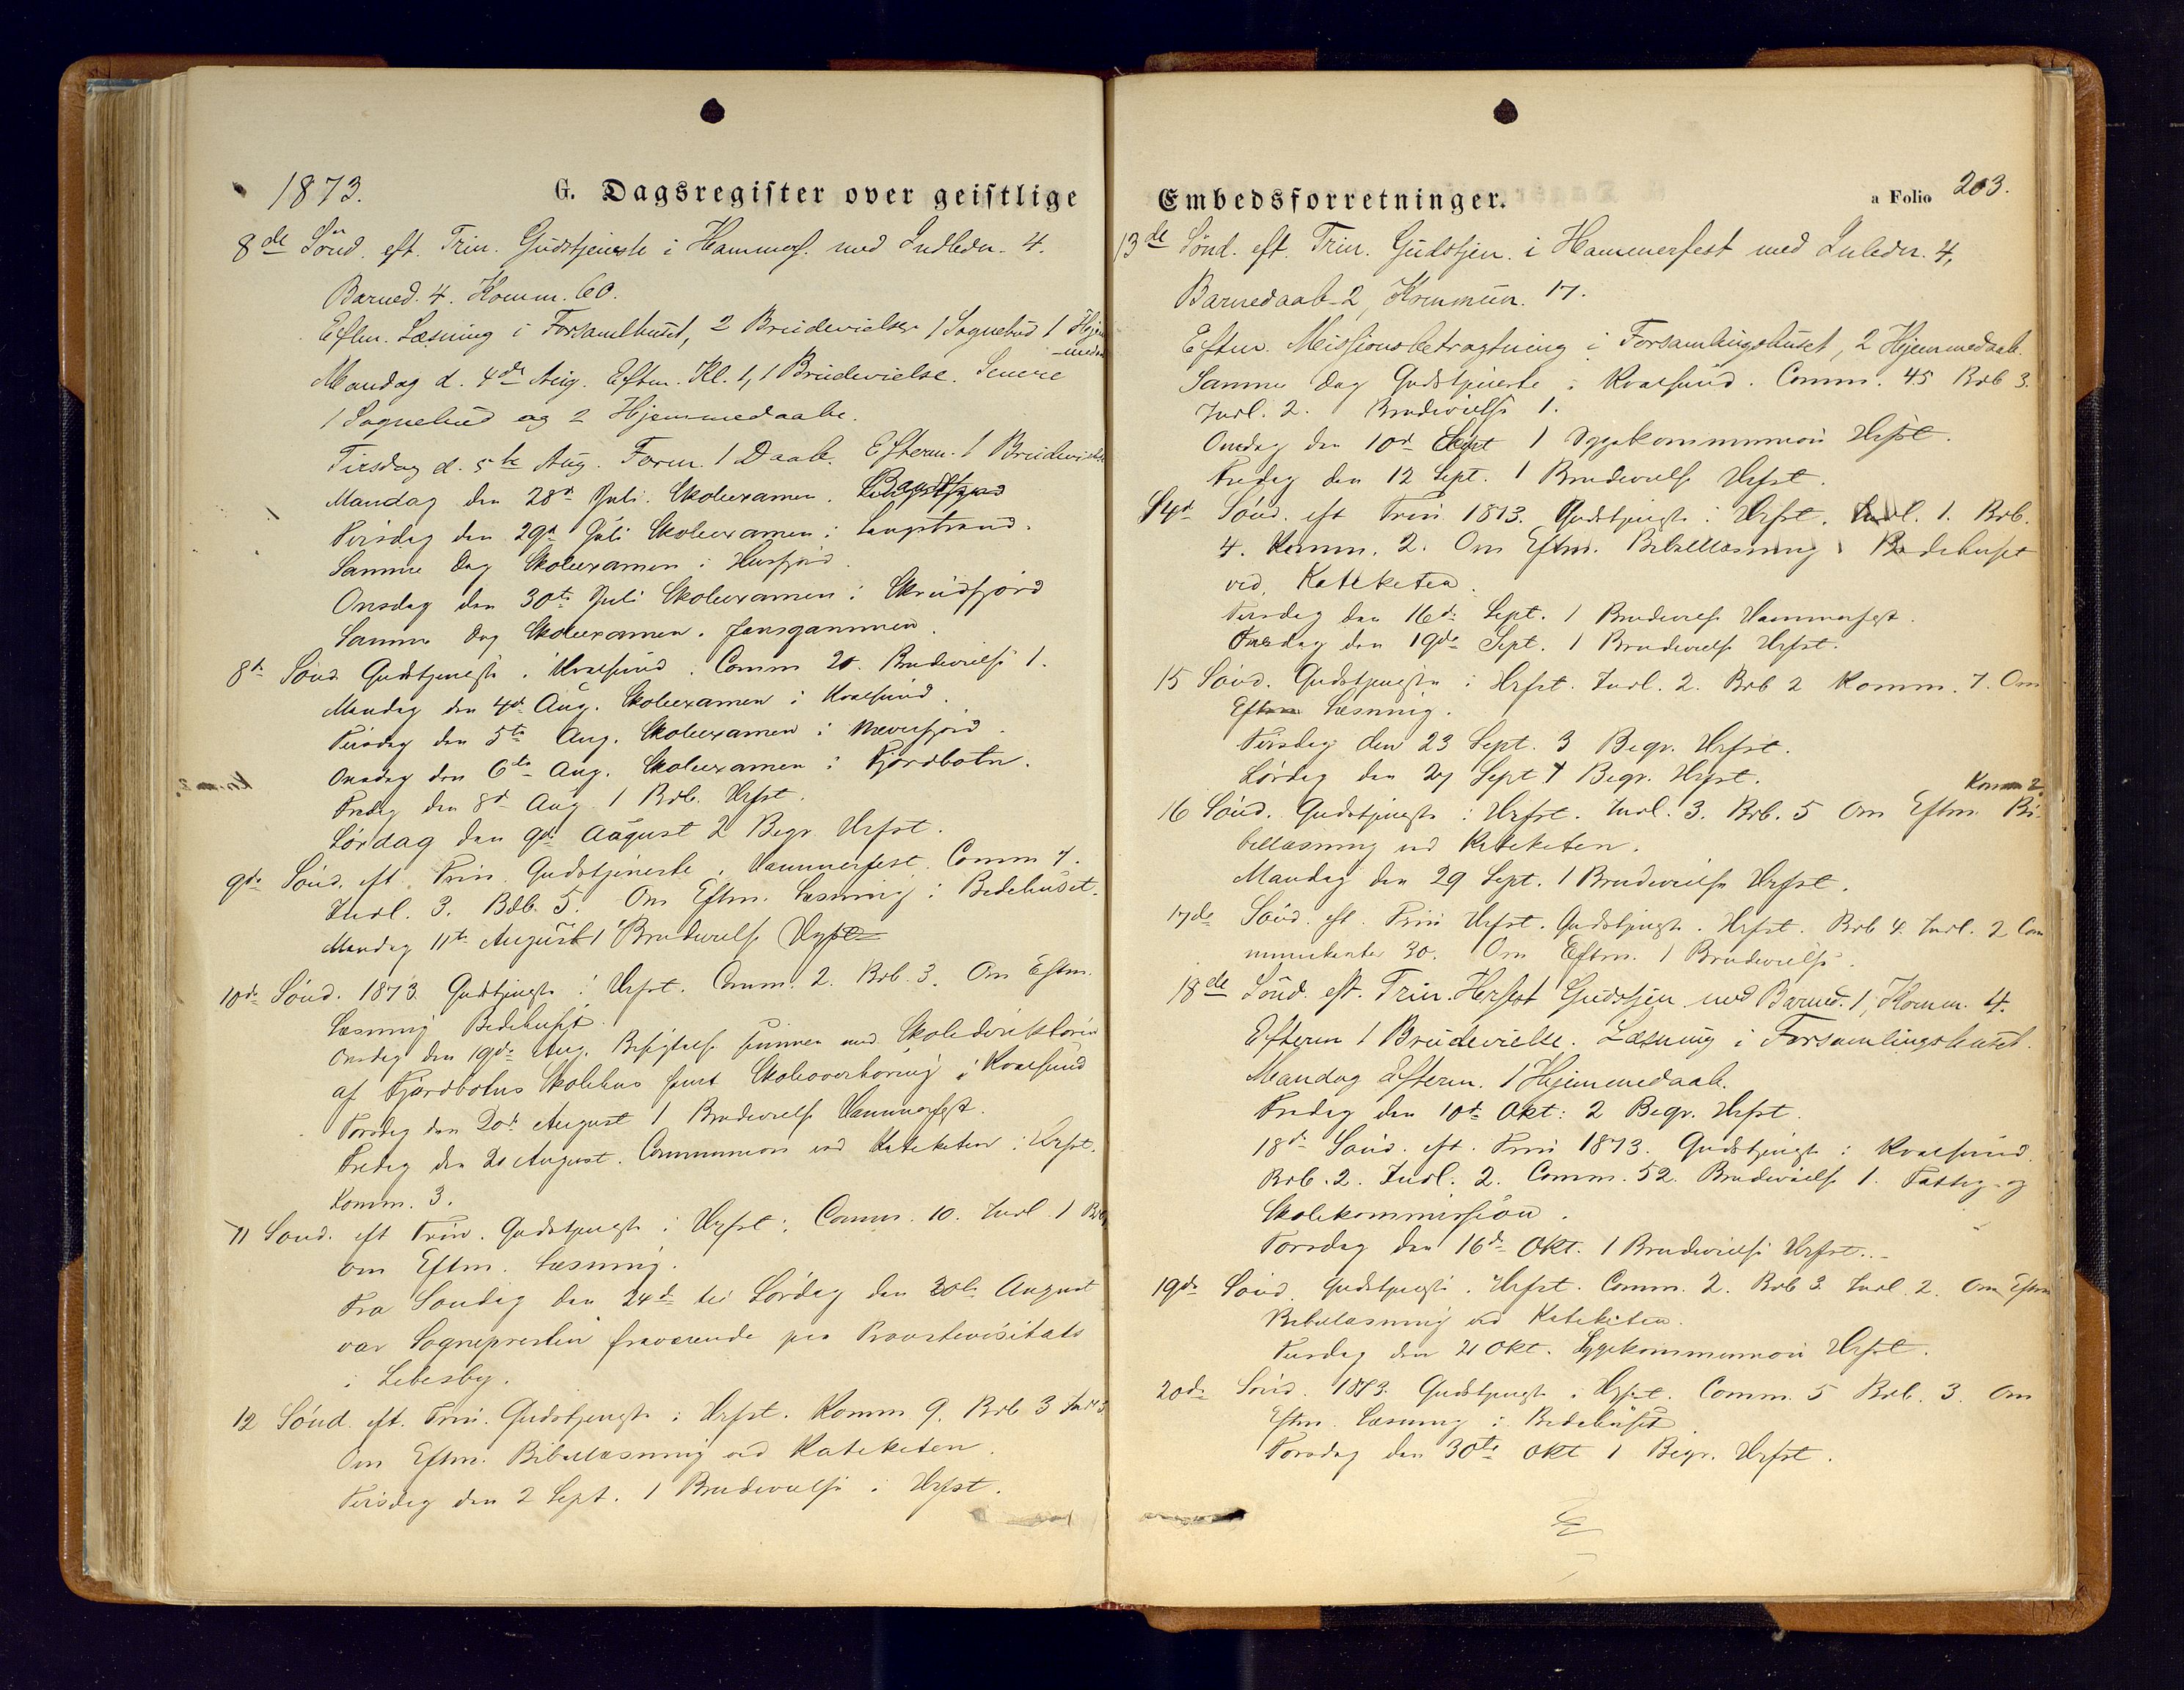 1873.
G. Dagsregister over geistlige
8de Sönd. eft. Trin. Gudstjeneste i Hammerf. med Indledn. 4.
Barned. 4. Komm. 60.
Eftm. Læsning i Forsamlhuset, 2 Brudevielser 1 Sognebud 1 Hjem
-medaab
Mandag d. 4de Aug. Eftm. Kl. 1, 1 Brudevielse. Senere
1 Sognebud og 2 Hjemmedaabe.
Tirsdag d. 5te Aug. Form. 1 Daab. Efterm. 1 Brudevielse
Mandag den 28de Juli. Skoleexamen.
Tirsdag den 29de Juli Skoleexamen i Langstrand.
Samme Dag Skoleexamen i Husfjord.
Onsdag den 30te Juli Skoleexamen i Skreidfjord
Samme Dag Skoleexamen. Jansgammen.
8de Sönd Gudstjeneste i Kvalsund. Comm 20. Brudevielse 1.
Mandag den 4de Aug. Skoleexamen i Kvalsund.
Tirsdag den 5te Aug. Skoleexamen i Neverfjord.
Onsdag den 6de Aug. Skoleexamen i Fjordbotn.
Fredag den 8de Aug. 1 Brb. Hrfst.
Lørdag den 9de August 2 Begr. Hrfst.
9de Sönd. eft. Trin. Gudstjeneste i Hammerfest. Comm 7.
Indl. 3. Bdb. 5. Om Eftm. Læsning i Bedehuset.
Mandag 11te August 1 Brudevielse Hrfst
10de Sönd. 1873. Gudstjeneste i Hrfst. Comm. 2. Brb. 3. Om Eftm.
Læsning Bedehuset.
Onsdag den 19de Aug. Besigtelse sammen med Skoledirektøren
af Fjordbotns Skolehus samt Skoleoverhøring i Kvalsund
Torsdag den 20de August 1 Brudevielse Hammerfest.
Fredag den 21 August. Communion ved Katekelen i Hrfst.
Komm. 3.
11 Sönd. eft Trin. Gudstjeneste i Hrfst. Comm. 10. Indl. 1 Brb
om Eftm. Læsning.
Fra Søndag den 24de til Lördag den 30te August
var Sognepresten fraværende paa Provstevisitats
i Lebesby.
12 Sönd. eft. Trin. Gudstjeneste i Hrfst. Komm 9. Brb 3 Indl 3
Om Eftm. Bibellæsning ved Kateketen.
Tirsdag den 2 Sept. 1 Brudevielse i Hrfst.
Embedsforretninger.
a Folio 203.
13de Sönd. eft. Trin. Gudstjen. i Hammerfest med Inledn. 4,
Barnedaab 2, Kommun. 17.
Eftm. Missionsbetragtning i Forsamlingshuset, 2 Hjemmedaab.
Samme Dag Gudstjeneste i Kvalsund. Comm. 45 Brb 3.
Indl. 2. Brudevielse 1.
Onsdag den 10de Sept 1 Sygekommunion Hrfst.
Fredag den 12 Sept. 1 Brudevielse Hrfst.
14de Sönd. eft Trin 1873. Gudstjeneste i Hrfst. Indl. 1. Brb.
4. Komm. 2. Om Eftm. Bibellæsning i Bedehuset
ved Kateketen.
Tirsdag den 16de Sept. 1 Brudevielse Hammerfest.
Fredag den 19de Sept. 1 Brudevielse Hrfst.
15 Sönd. Gudstjeneste i Hrfst. Indl. 2. Brb 2 Komm. 7. Om
Eftm Læsning.
Tirsdag den 23 Sept. 3 Begr. Hrfst.
Lördag den 27 Sept 1 Begr. Hrfst.
Komm 2.
16 Sönd. Gudstjeneste i Hrfst. Indl. 3. Brb. 5 Om Eftm. Bi-
bellæsning ved Kateketen.
Mandag den 29 Sept. 1 Brudevielse Hrfst.
17de Sönd. eft. Trin Hrfst. Gudstjeneste. Hrfst. Brb 4. Indl. 2 Com
munikanter 30. Om Eftm. 1 Brudevielse.
18de Sönd. eft. Trin. Hrfst Gudstjen med Barned. 1, Komm. 4.
Efterm 1 Brudevielse. Læsning i Forsamlingshuset.
Mandag Efterm. 1 Hjemmedaab.
Fredag den 10de Okt: 2 Begr. Hrfst.
18de Sönd. eft. Trin 1873. Gudstjeneste i Kvalsund.
Brb. 2. Indl. 2. Comm. 52. Brudevielse 1. Fattig- og
Skolekommission.
Torsdag den 16de Okt. 1 Brudevielse Hrfst.
19de Sönd. Gudstjeneste. Hrfst. Comm. 2. Brb 3. Indl. 2. Om Eftm
Bibellæsning ved Kateketen.
Tirsdag den 21 Okt. Sygekommunion Hrfst.
20de Sönd. 1873. Gudstjeneste i Hrfst. Comm. 5 Brb. 3. Om
Eftm. Læsning i Bedehuset
Torsdag den 30te Okt 1 Begr. Hrfst.